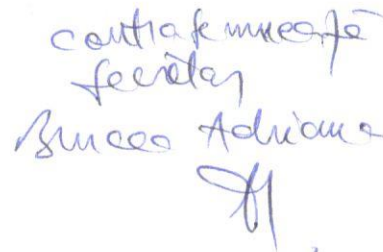 contrasemnează
secretar
Adriana